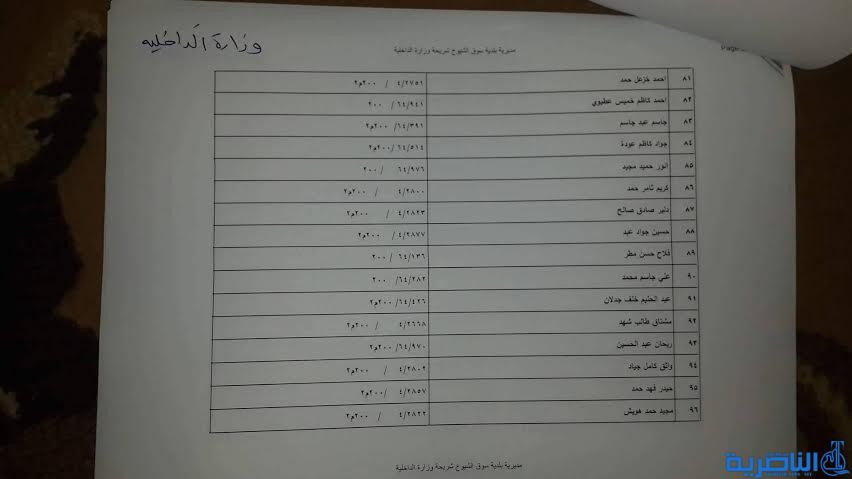 وزارة الداخلية
مديرية بلدية سوق الشيوخ شريحة وزارة الداخلية
Page
٨١ احمد خزعل حمد ٤/٢٧٥١ / ٢٠٠م٢
٨٢ احمد كاظم خميس عطيوي ٦٤/٩٤١/ ٢٠٠
٨٣ جاسم عبد جاسم ٦٤/٣٩١/ ٢٠٠م٢
٨٤ جواد كاظم عودة ٦٤/٥١٤/ ٢٠٠م٢
٨٥ انور حميد مجيد ٦٤/٩٧٦ / ٢٠٠
٨٦ كريم ثامر حمد ٤/٢٨٠٠ / ٢٠٠م٢
٨٧ دلير صادق صالح ٤/٢٨٢٣ / ٢٠٠
٨٨ حسين جواد عبد ٤/٢٨٧٧ / ٢٠٠م٢
٨٩ فلاح حسن مطر ٦٤/١٣٦/ ٢٠٠
٩٠ علي جاسم محمد ٦٤/٢٨٢/ ٢٠٠
٩١ عبد الحليم خلف جدلان ٦٤/٤٢٦/ ٢٠٠م٢
٩٢ مشتاق طالب شهد ٤/٢٦٦٨ / ٢٠٠م٢
٩٣ ريحان عبد الحسين ٦٤/٩٧٠/ ٢٠٠م٢
٩٤ واثق كامل جياد ٤/٢٨٠٢ / ٢٠٠م٢
٩٥ حيدر فهد حمد ٤/٢٨٥٧ /٢٠٠م٢
٩٦ مجيد حمد هويش ٤/٢٨٢٢ / ٢٠٠م٢
مديرية بلدية سوق الشيوخ شريحة وزارة الداخلية
الناصرية